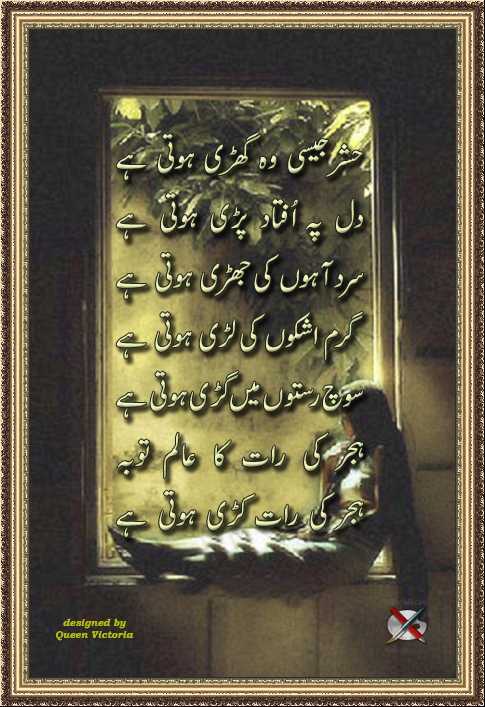 حشر جیسی وہ گھڑی ہوتی ہے
دل پہ اُفتاد پڑی ہوتی ہے
سرد آہوں کی جھڑی ہوتی ہے
گرم اشکوں کی لڑی ہوتی ہے
سوچ رستوں میں گڑی ہوتی ہے
ہجر کی رات کا عالم توبہ
ہجر کی رات کڑی ہوتی ہے
designed by
Queen Victoria